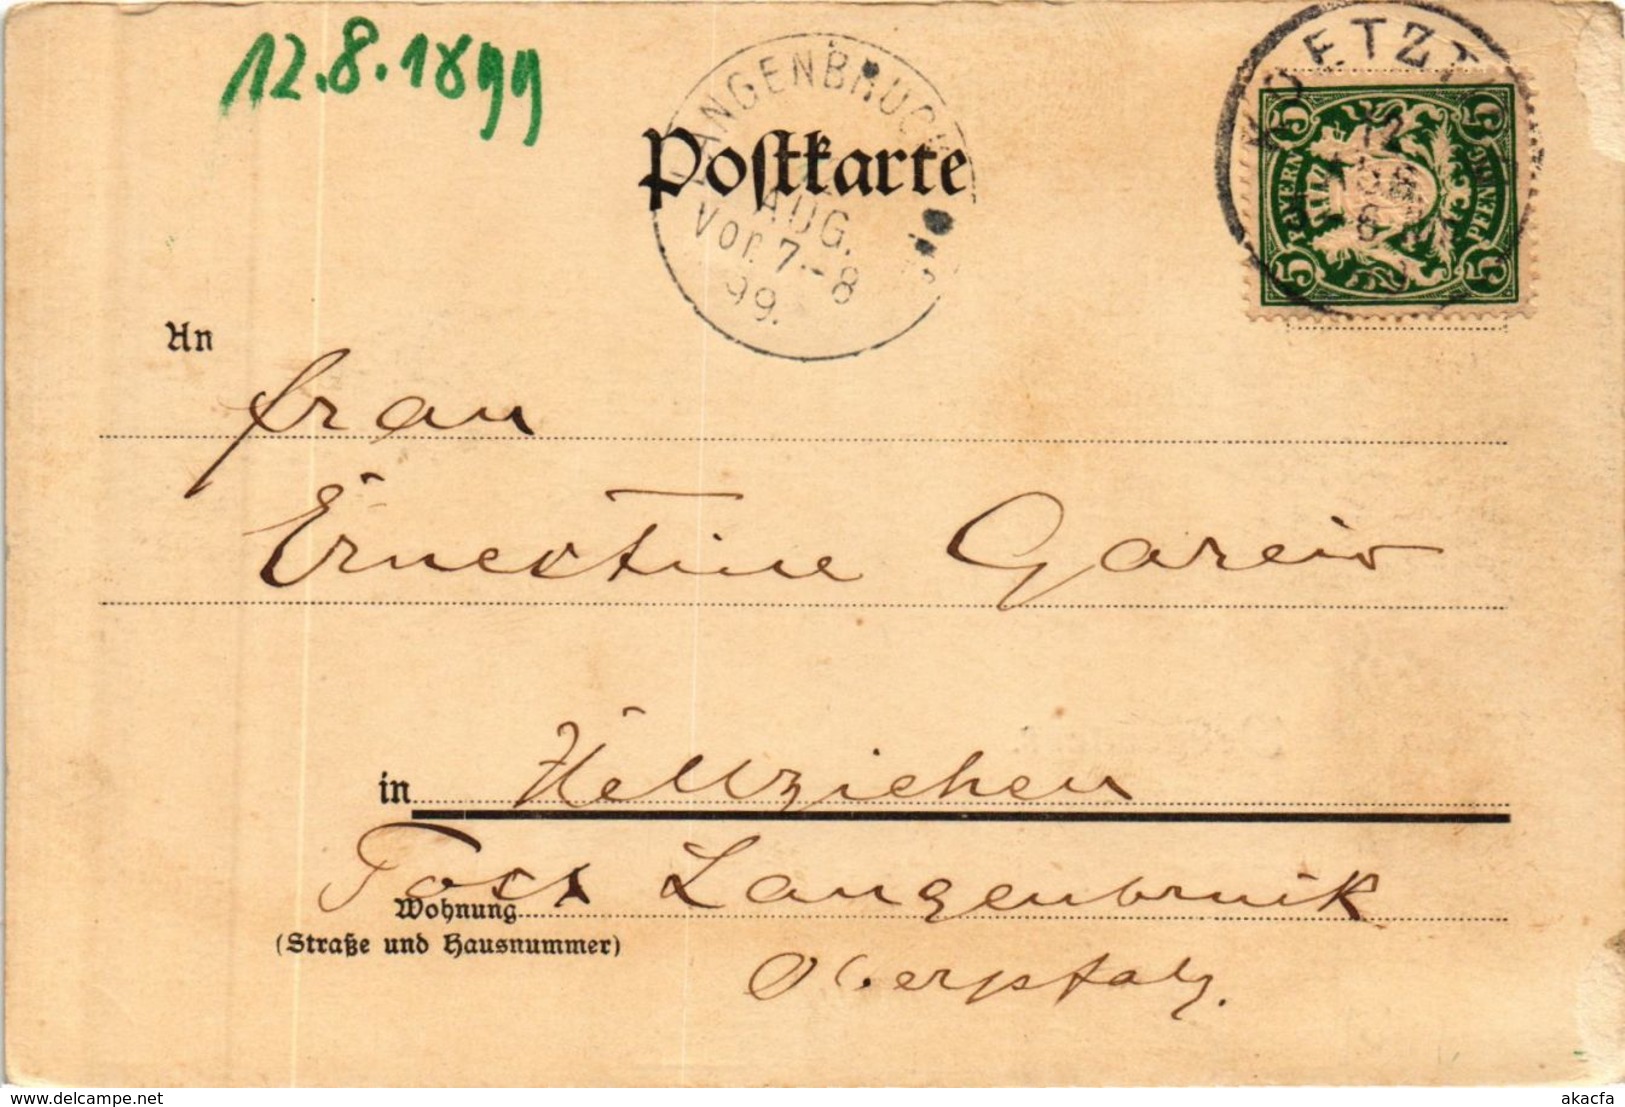 12.8.1899
LANGENBRUCK
AUG.
Vor. 7-8
99.
KOETZT
12
6
BAYERN
5 5
5 5
Postkarte
An
Frau
Ernestine Gareis
in Hellziehen
Post Langenbruck
Wohnung
(Straße und Hausnummer)
Oberpfalz.
delcampe.net
akacfa